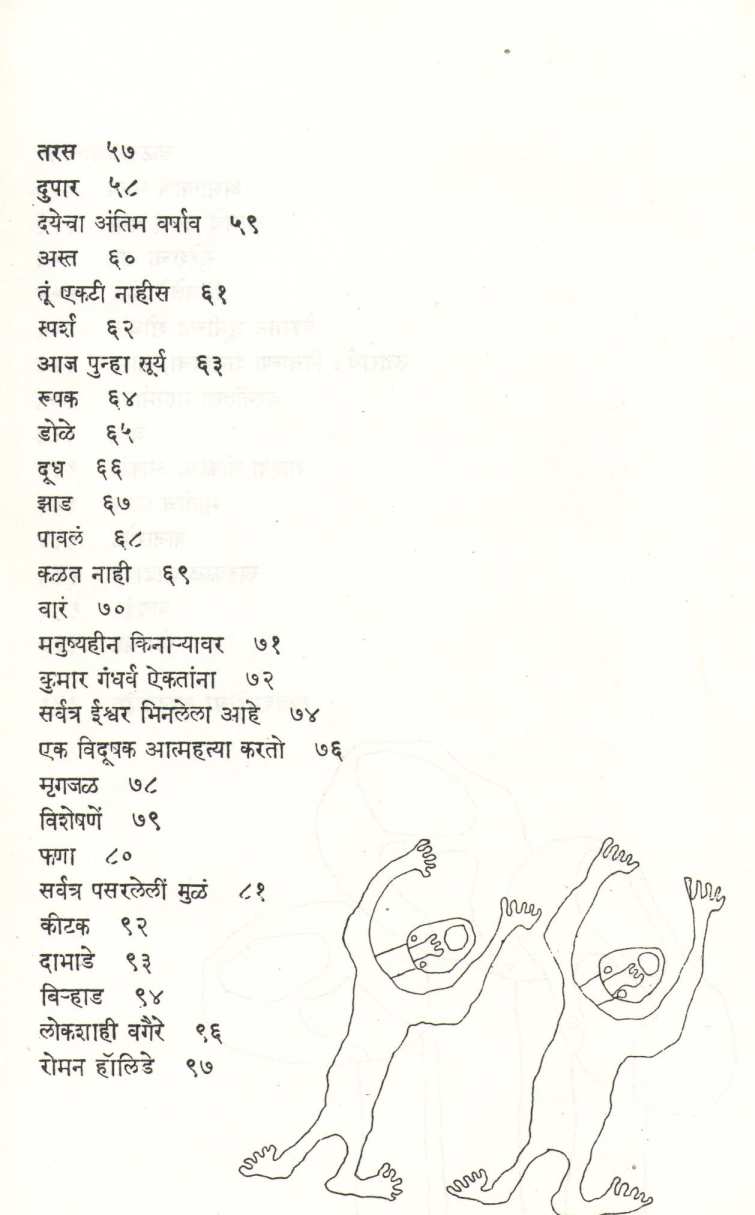 तरस ५७
दुपार ५८
दयेचा अंतिम वर्षाव ५९
अस्त ६०
तूं एकटी नाहीस ६१
स्पर्श ६२
आज पुन्हा सूर्य ६३
रूपक ६४
डोळे ६५
दूध ६६
झाड ६७
पावलं ६८
कळत नाही ६९
वारं ७०
मनुष्यहीन किनाऱ्यावर ७१
कुमार गंधर्व ऐकतांना ७२
सर्वत्र ईश्वर भिनलेला आहे ७४
एक विदूषक आत्महत्या करतो ७६
मृगजळ ७८
विशेषणें ७९
फणा ८०
सर्वत्र पसरलेलीं मुळं ८१
कीटक ९२
दाभाडे ९३
बिऱ्हाड ९४
लोकशाही वगैरे ९६
रोमन हॉलिडे ९७